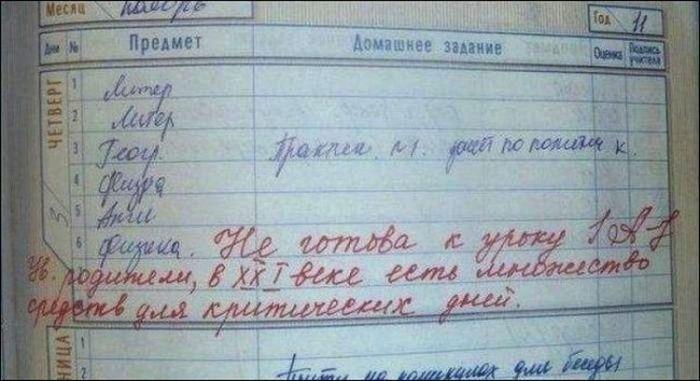 Месяц ноябрь Год 11
Дни № Предмет Домашнее задание Оценка Подпись учителя
ЧЕТВЕРГ 3
1 Литер
2 Литер
3 Геогр. Практич. №1. по политич к.
4 Физра
5 Англ
6 Физика. Не готова к уроку!
Ув. родители, в XXI веке есть множество
средств для критических дней.
1
2 на каникулах для беседы